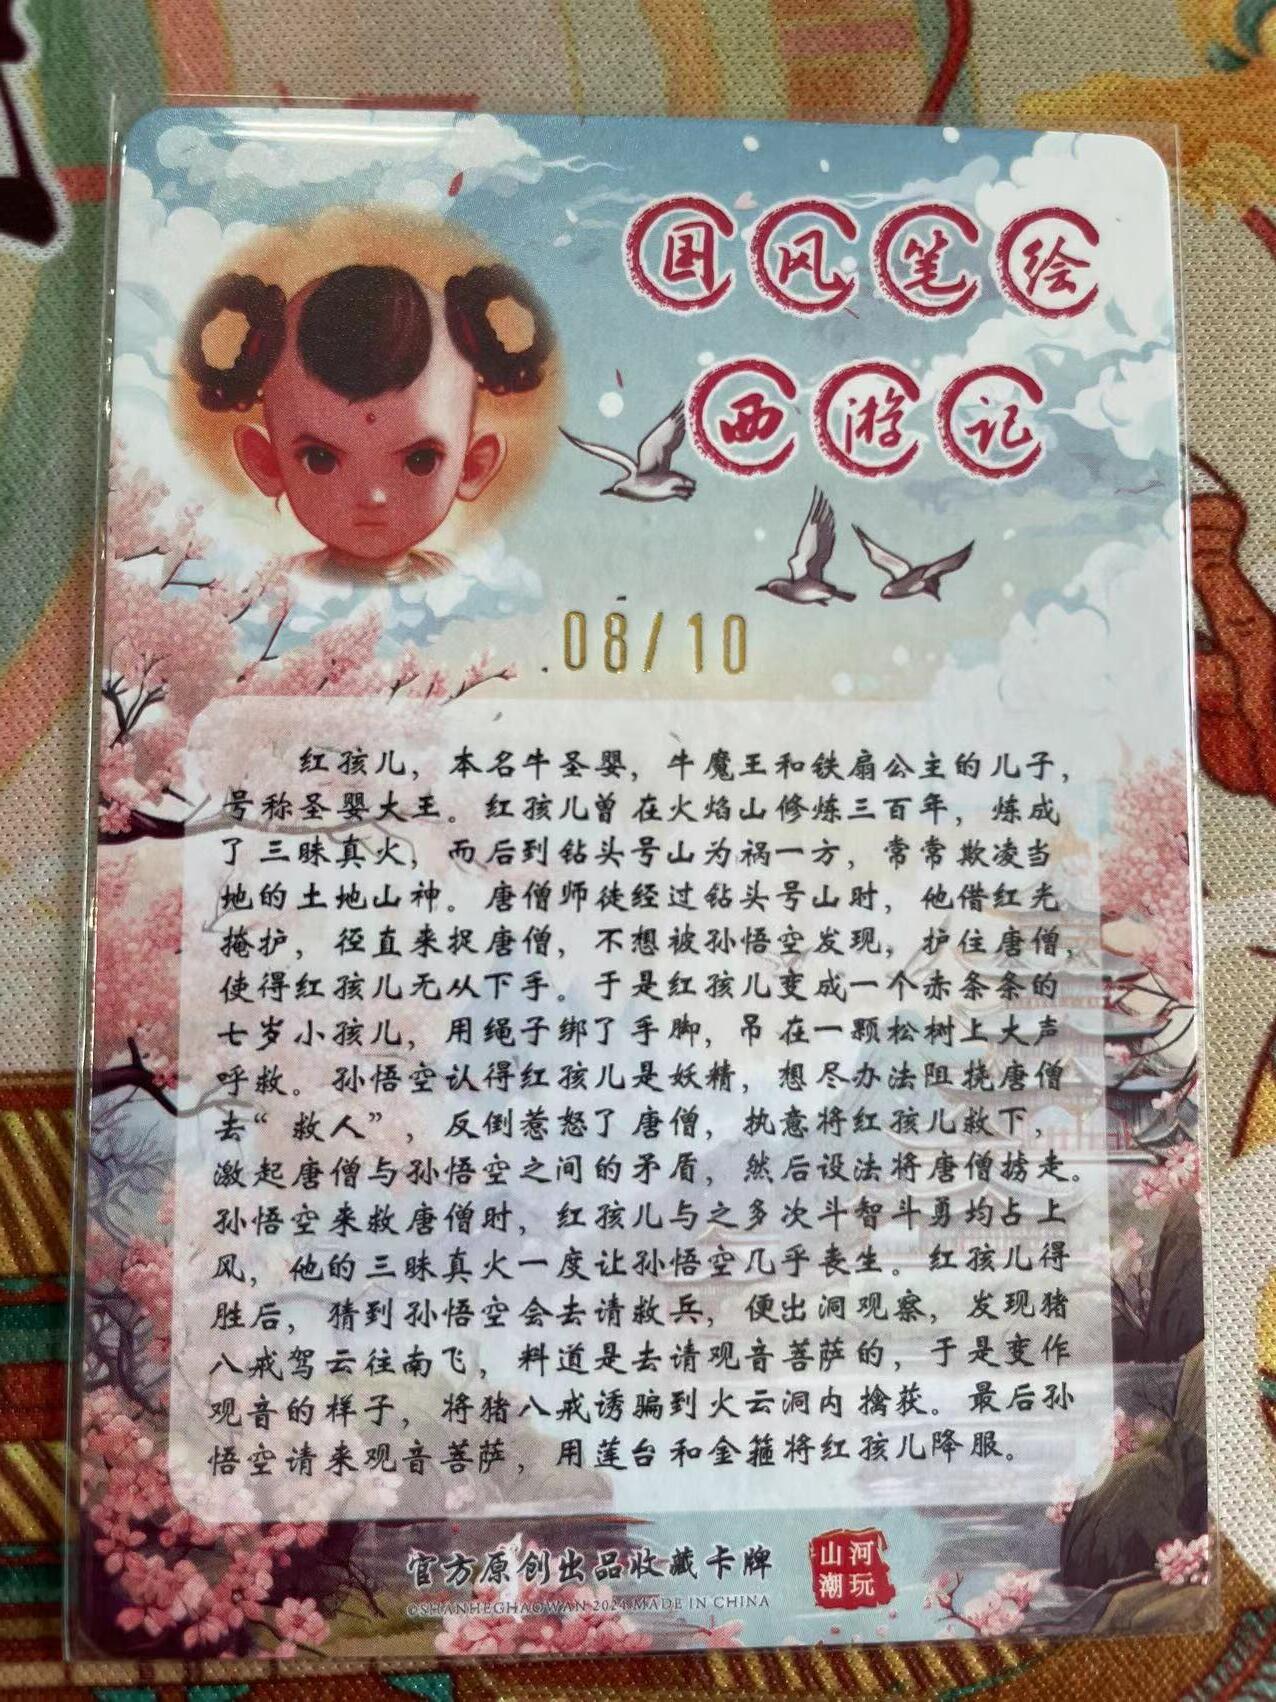 国风笔绘
西游记
08/10
红孩儿，本名牛圣婴，牛魔王和铁扇公主的儿子，
号称圣婴大王。红孩儿曾在火焰山修炼三百年，炼成
了三昧真火，而后到钻头号山为祸一方，常常欺凌当
地的土地山神。唐僧师徒经过钻头号山时，他借红光
掩护，径直来捉唐僧，不想被孙悟空发现，护住唐僧，
使得红孩儿无从下手。于是红孩儿变成一个赤条条的
七岁小孩儿，用绳子绑了手脚，吊在一颗松树上大声
呼救。孙悟空认得红孩儿是妖精，想尽办法阻挠唐僧
去“救人”，反倒惹怒了唐僧，执意将红孩儿救下，
激起唐僧与孙悟空之间的矛盾，然后设法将唐僧掳走。
孙悟空来救唐僧时，红孩儿与之多次斗智斗勇均占上
风，他的三昧真火一度让孙悟空几乎丧生。红孩儿得
胜后，猜到孙悟空会去请救兵，便出洞观察，发现猪
八戒驾云往南飞，料道是去请观音菩萨的，于是变作
观音的样子，将猪八戒诱骗到火云洞内擒获。最后孙
悟空请来观音菩萨，用莲台和金箍将红孩儿降服。
官方原创出品收藏卡牌
©SHANHEGHAOWAN 2024 MADE IN CHINA
山河
潮玩